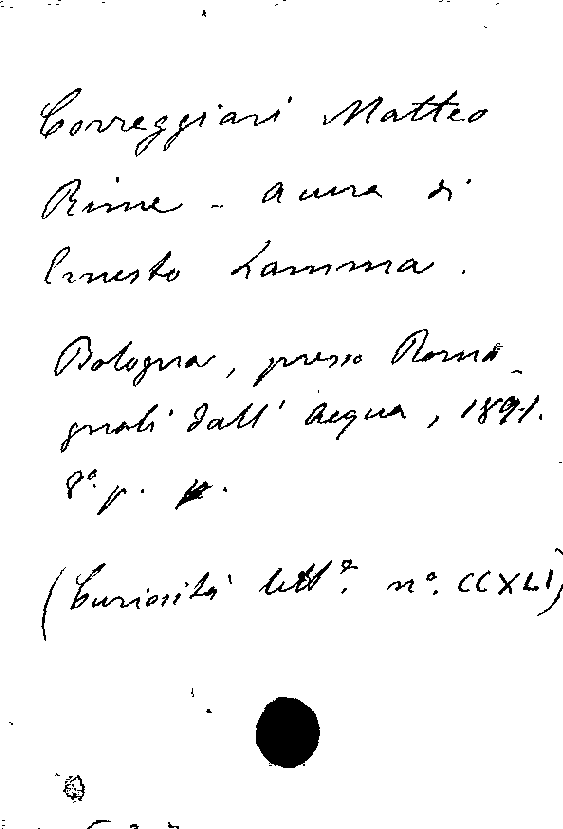 Correggiari Matteo
Rime - a cura di
Ernesto Lamma.
Bologna, presso Roma-
gnoli dall' Acqua, 1891.
8º. p. p.
(Curiosità lettº. nº. CCXLI)